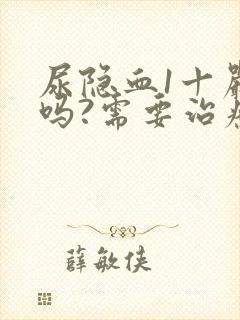 尿隐血1十
吗?需要治
薛敏侠